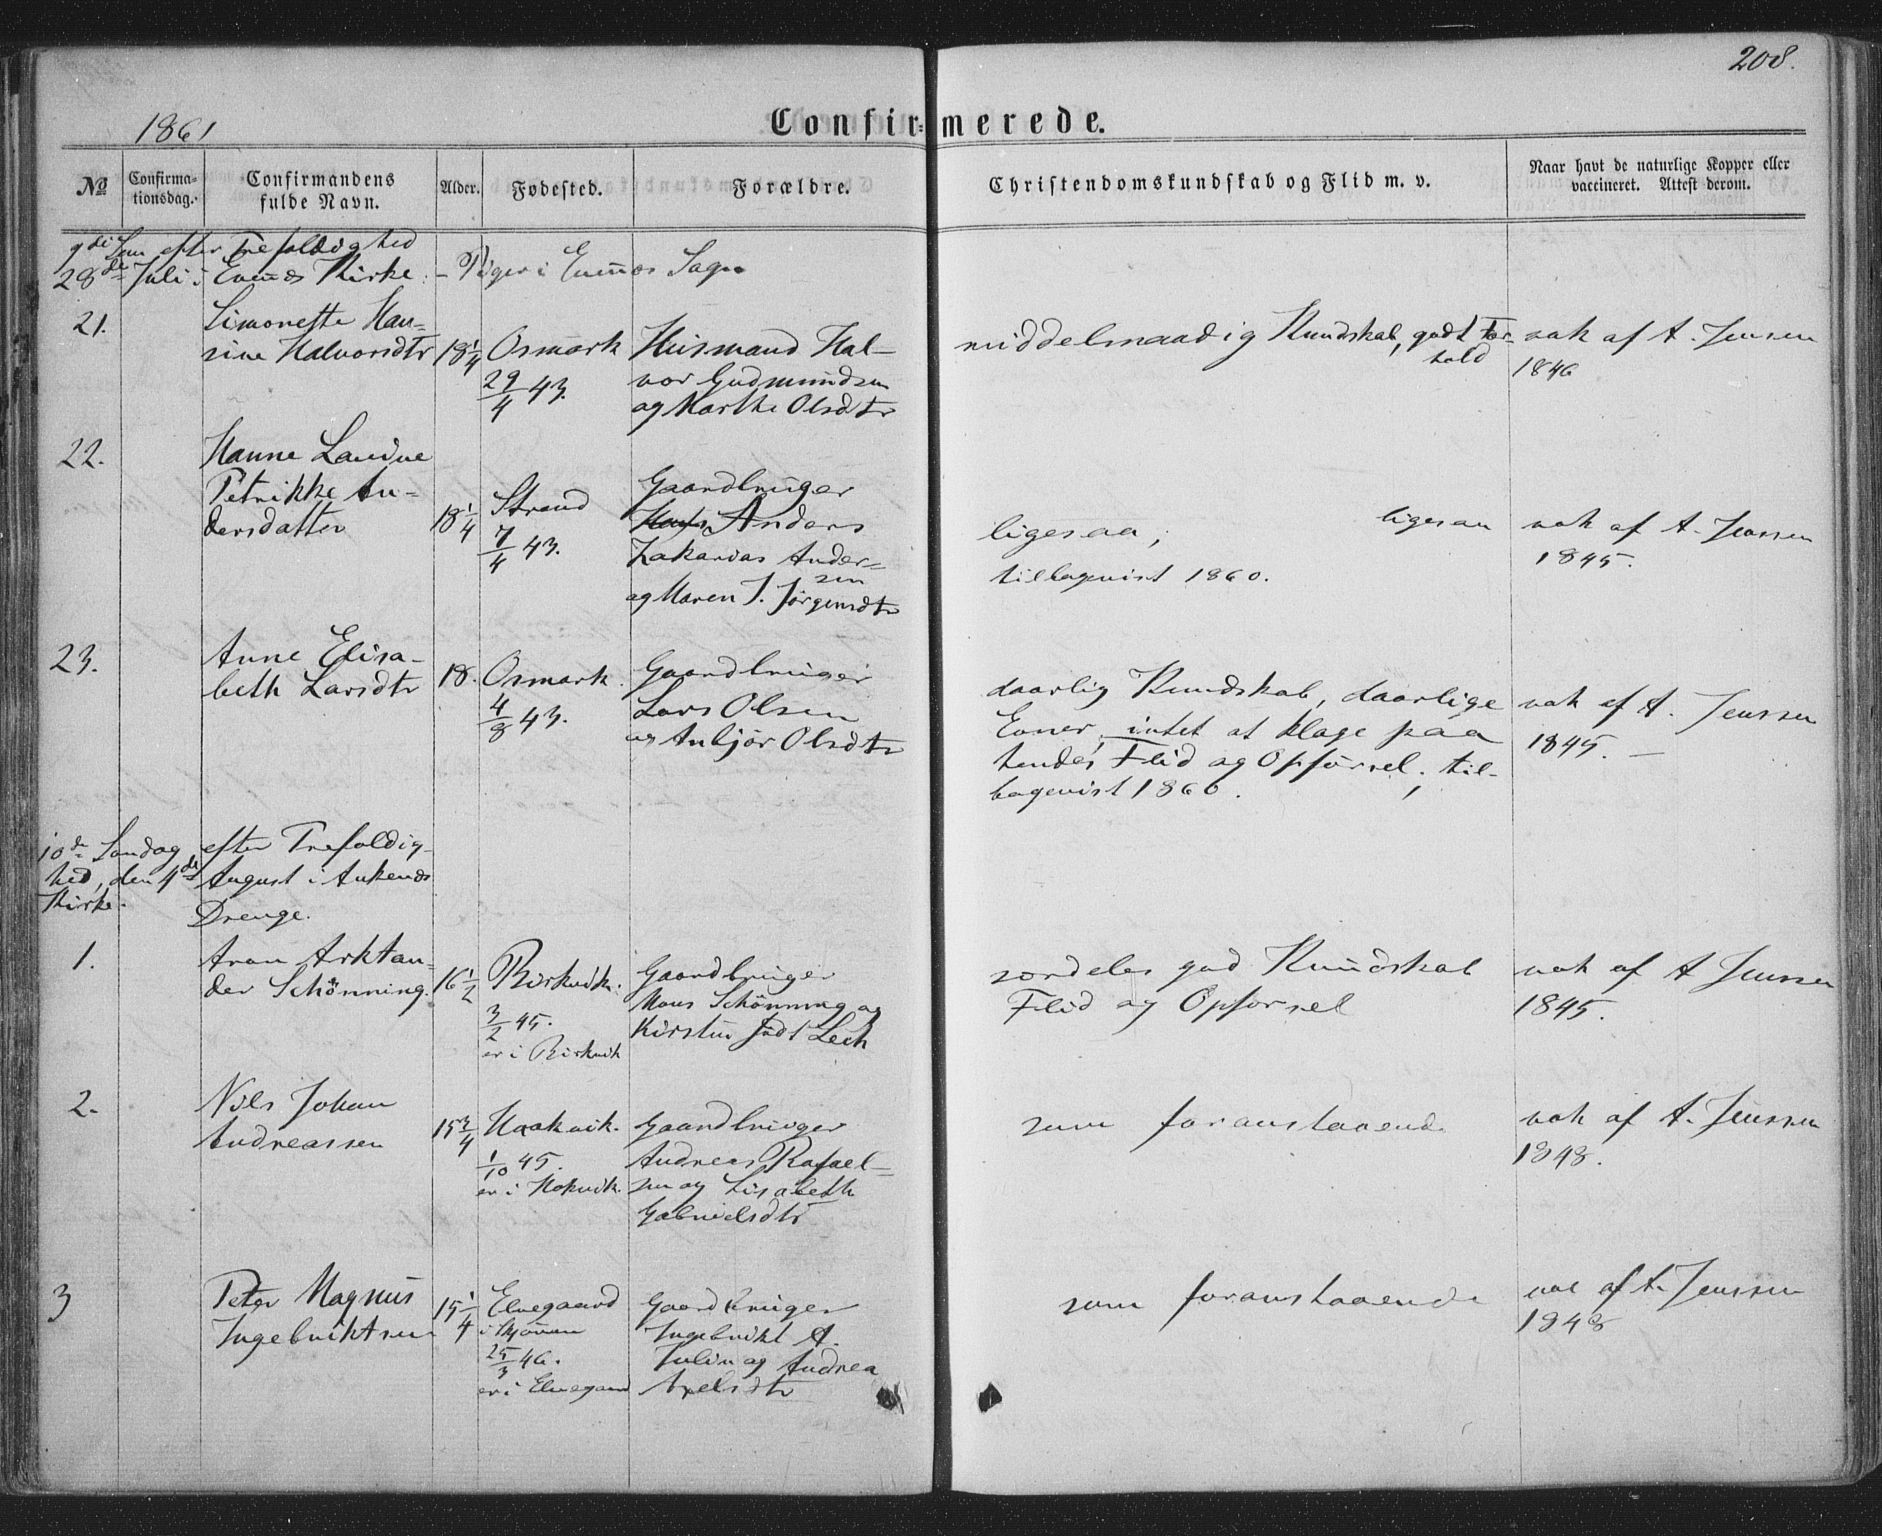 208.
1861
Confirmerede.
No
Confirma-
tionsdag.
Confirmandens
fulde Navn.
Alder.
Fødested.
Forældre.
Christendomskundskab og Flid m. v.
Naar havt de naturlige Kopper eller
vaccineret. Attest derom.
9de Søn efter Trefoldighed
28de Juli i Evenæs Kirke. - Piger i Evenæs Sogn
21.
Simonette Han-
sine Halvorsdtr
18 1/4
Osmark
29/4 43.
Huusmand Hal-
vor Gudmundsen
og Marthe Olsdtr
middelmaadig Kundskab, godt For-
hold
vak af A. Jenssen
1846
22.
Hanne Lavine
Petrikke An-
dersdatter
18 1/4
Strand
7/4 43.
Gaardbruger
Anders
Zakarias Ander-
sen
og Maren J. Jørgensdtr
ligesaa, ligesaa
tilbagevist 1860.
vak af A. Jenssen
1845.
23.
Anne Elisa-
beth Larsdtr
18.
Osmark.
4/8 43.
Gaardbruger
Lars Olsen
og Anbjør Olsdtr
daarlig Kundskab, daarlige
Evner, intet at klage paa
hendes Flid og Opførsel, til-
bagevist 1860.
vak af A. Jenssen
1845. -
10de Søndag efter Trefoldig-
hed, den 4de August i Ankenes
Kirke.
Drenge.
1.
Aron Arktan-
der Schønning.
16 1/2
Birkvik.
3/2 45.
er i Birkvik
Gaardbruger
Mons Schönning og
Kirsten Lech
særdeles god Kundskab
Flid og Opførsel
vak af A Jenssen
1845.
2.
Nils Johan
Andreassen
15 3/4
Haakvik.
1/10 45.
er i Hokvik.
Gaardbruger
Andreas Rafael-
sen og Lisabeth
Gabrielsdtr
som foranstaaende
vak af A. Jenssen
1848.
3
Peter Magnus
Ingebriktsen
15 1/4
Elvegaard
i Skjomen
25/3 46.
er i Elvegaard
Gaardbruger
Ingebrikt A.
Julin og Andrea
Axelsdtr
som foranstaaende
vak af A. Jenssen
1848